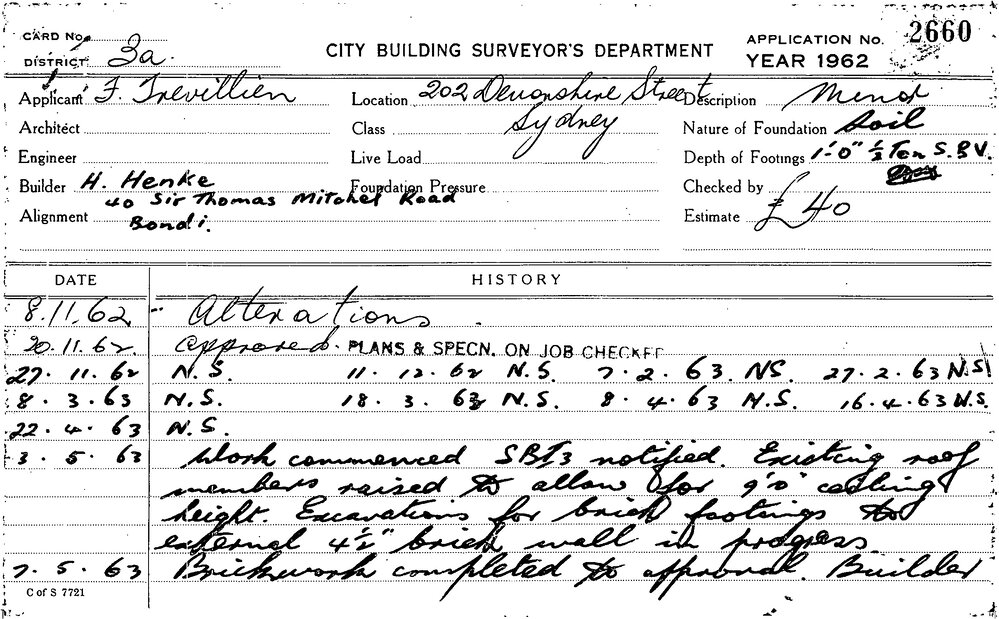 CARD No.
DISTRICT 3a.
CITY BUILDING SURVEYOR'S DEPARTMENT
APPLICATION No. 2660
YEAR 1962
Applicant F. Trevillien Location 202 Devonshire Street Description Minor
Architect Class Sydney Nature of Foundation Soil
Engineer Live Load Depth of Footings 1'-0" ½ Ton S.B.V.
Builder H. Henke Foundation Pressure Checked by
40 Sir Thomas Mitchel Road
Alignment Bondi. Estimate £40
DATE HISTORY
8.11.62 Alterations.
20.11.62. Approved. PLANS & SPECN. ON JOB CHECKED
27.11.62 N.S. 11.12.62 N.S. 7.2.63. NS. 27.2.63 N.S.
8.3.63 N.S. 18.3.63 N.S. 8.4.63 N.S. 16.4.63 N.S.
22.4.63 N.S.
3.5.63 Work commenced SBI3 notified. Existing roof
members raised to allow for 9'0" ceiling
height. Excavations for brick footings to
external 4½" brick wall in progress
7.5.63 Brickwork completed to approval. Builder
C of S 7721